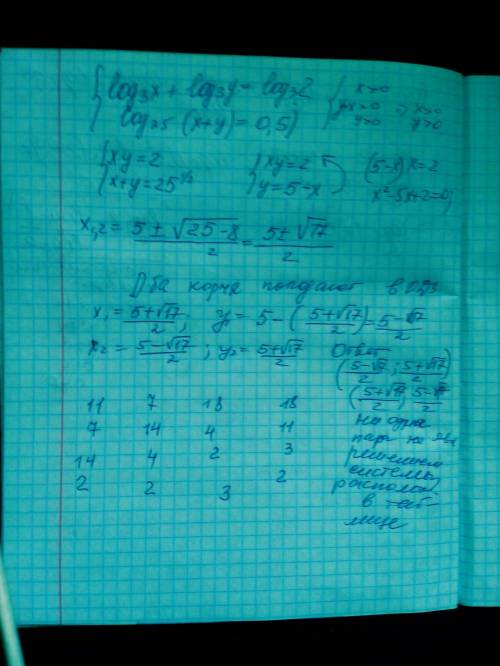 { log₃x + log₃y = log₃2
log₂₅ (x+y) = 0,5
{ x>0
y+x>0 => x>0
y>0 y>0
{ xy=2
x+y=25^1/2
{ xy=2
y=5-x
(5-x)x=2
x²-5x+2=0;
x₁,₂ = (5±√25-8)/2 = (5±√17)/2
Два корня попадают в ОДЗ
x₁ = (5+√17)/2; y = 5-((5+√17)/2) = (5-√17)/2
x₂ = (5-√17)/2; y₂ = (5+√17)/2
Ответ
((5-√17)/2; (5+√17)/2)
((5+√17)/2; (5-√17)/2)
11 7 18 18
7 14 4 11
14 4 2 3
2 2 3 2
ни одна
пара не явл
решением
системы
располож
в таб-
лице